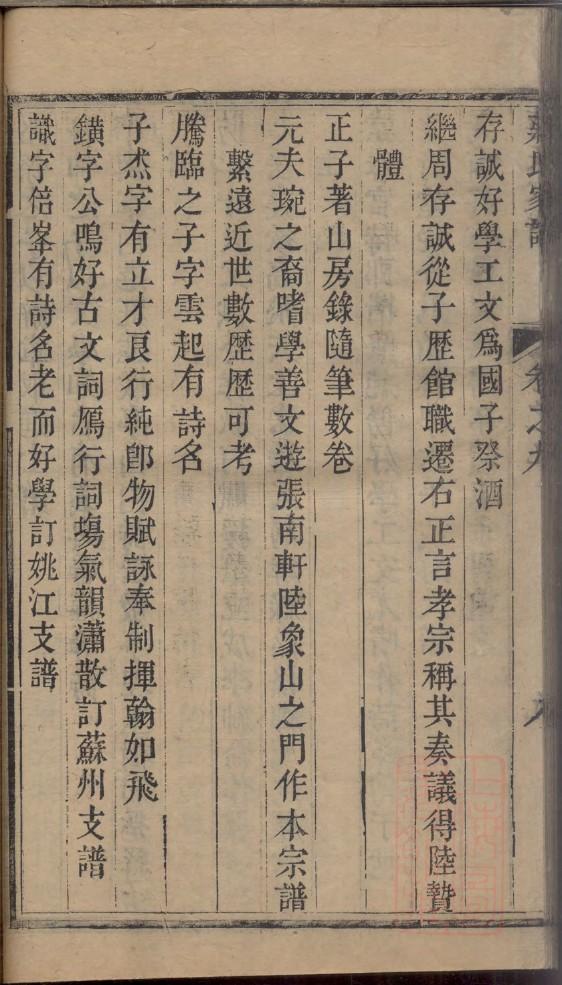 存誠好學工文爲國子祭酒
繼周存誠從子歷館職遷右正言孝宗稱其奏議得陸贄
體
正子著山房錄隨筆數卷
元夫琬之裔嗜學善文遊張南軒陸象山之門作本宗譜
繫遠近世數歷歷可考
騰臨之子字雲起有詩名
子杰字有立才良行純卽物賦詠奉制揮翰如飛
鐄字公鳴好古文詞鴈行詞塲氣韻瀟散訂蘇州支譜
識字倍峯有詩名老而好學訂姚江支譜